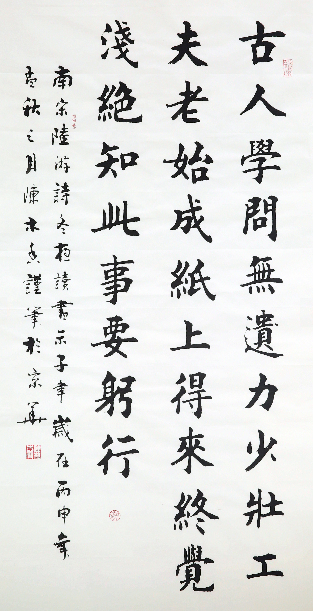 古人學問無遺力少壯工
夫老始成紙上得來終覺
淺絕知此事要躬行
南宋陸游詩冬夜讀書示子聿歲在丙申年
孟秋之月陳木香謹筆於京華